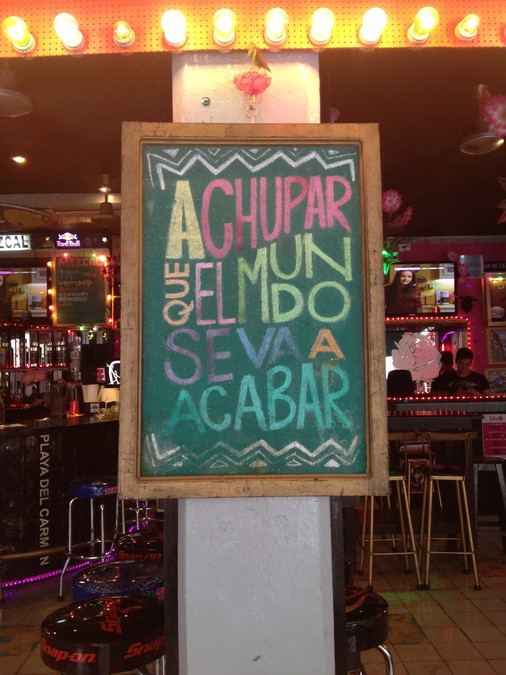 A CHUPAR
QUE EL MUN
DO
SE VA A
ACABAR
ZCAL
Red Bull
PLAYA DEL CARM N
Snap-on
Snap-on